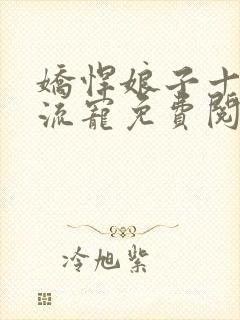 嬌悍娘子十
流寵免費閱
冷旭紫